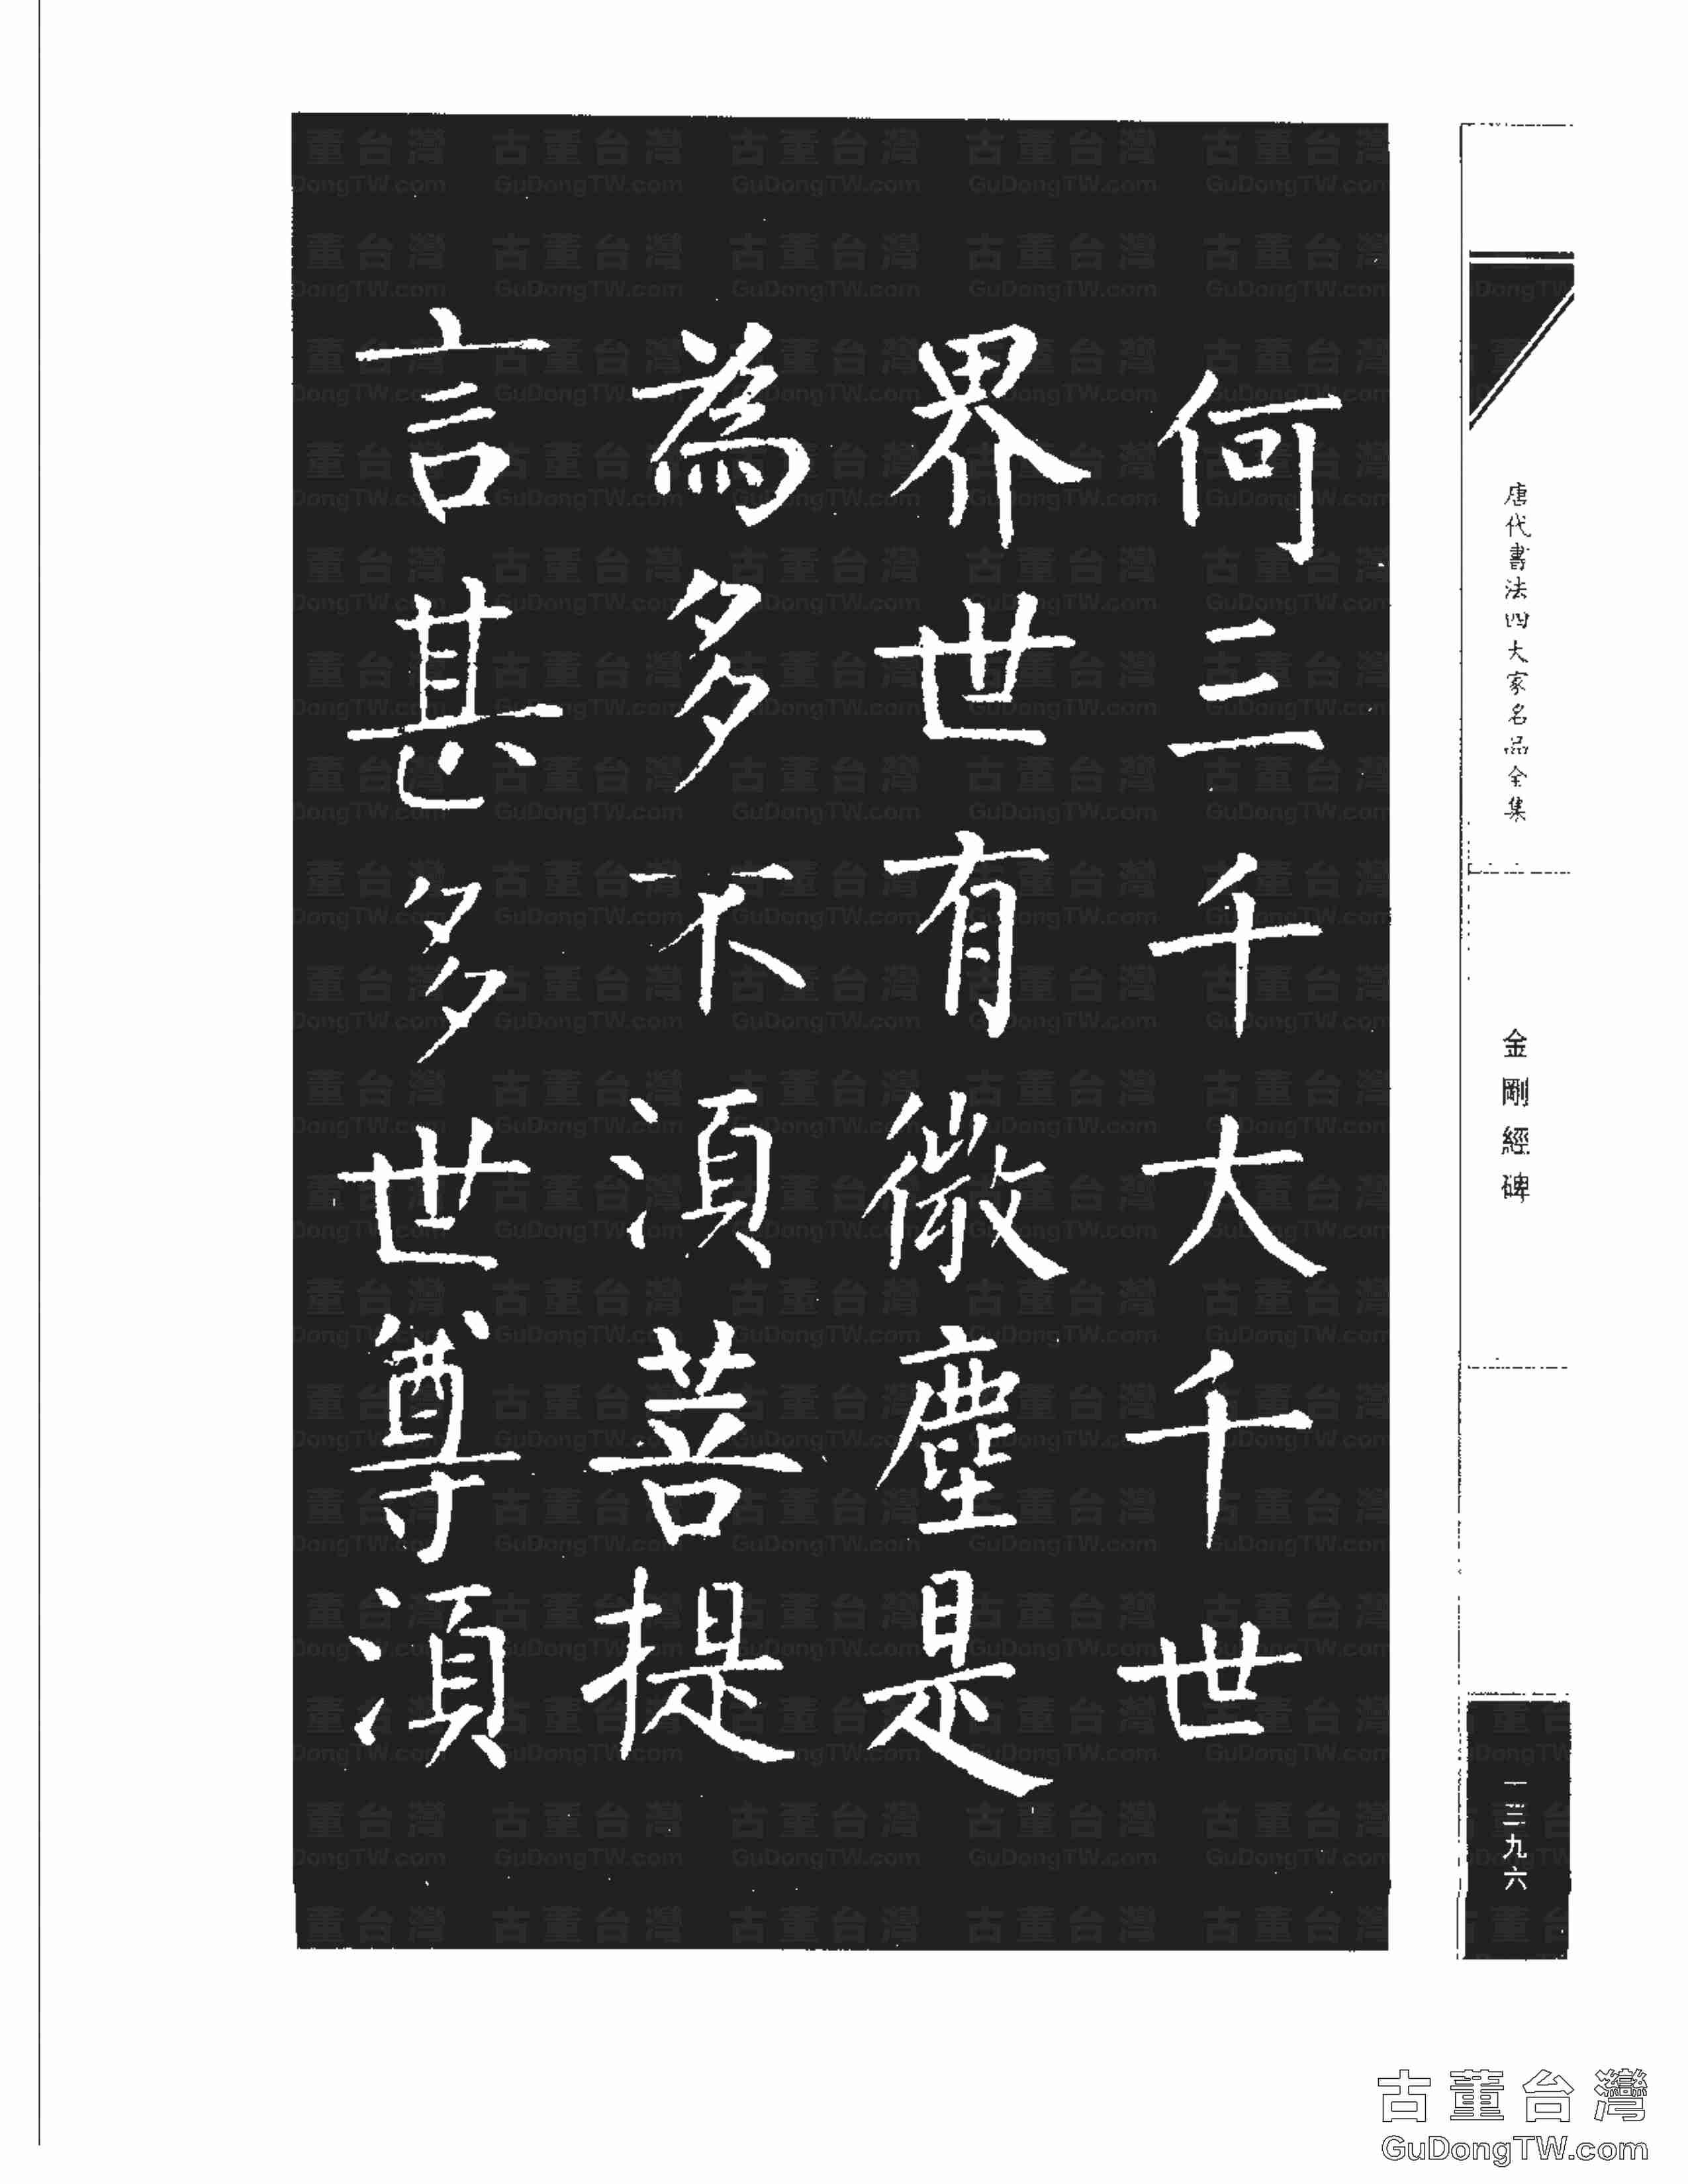 唐代書法四大家名品全集
金剛經碑
一三九六
何三千大千世
界世有微塵是
為多不湏菩提
言甚多世尊湏
古董台灣
GuDongTW.com